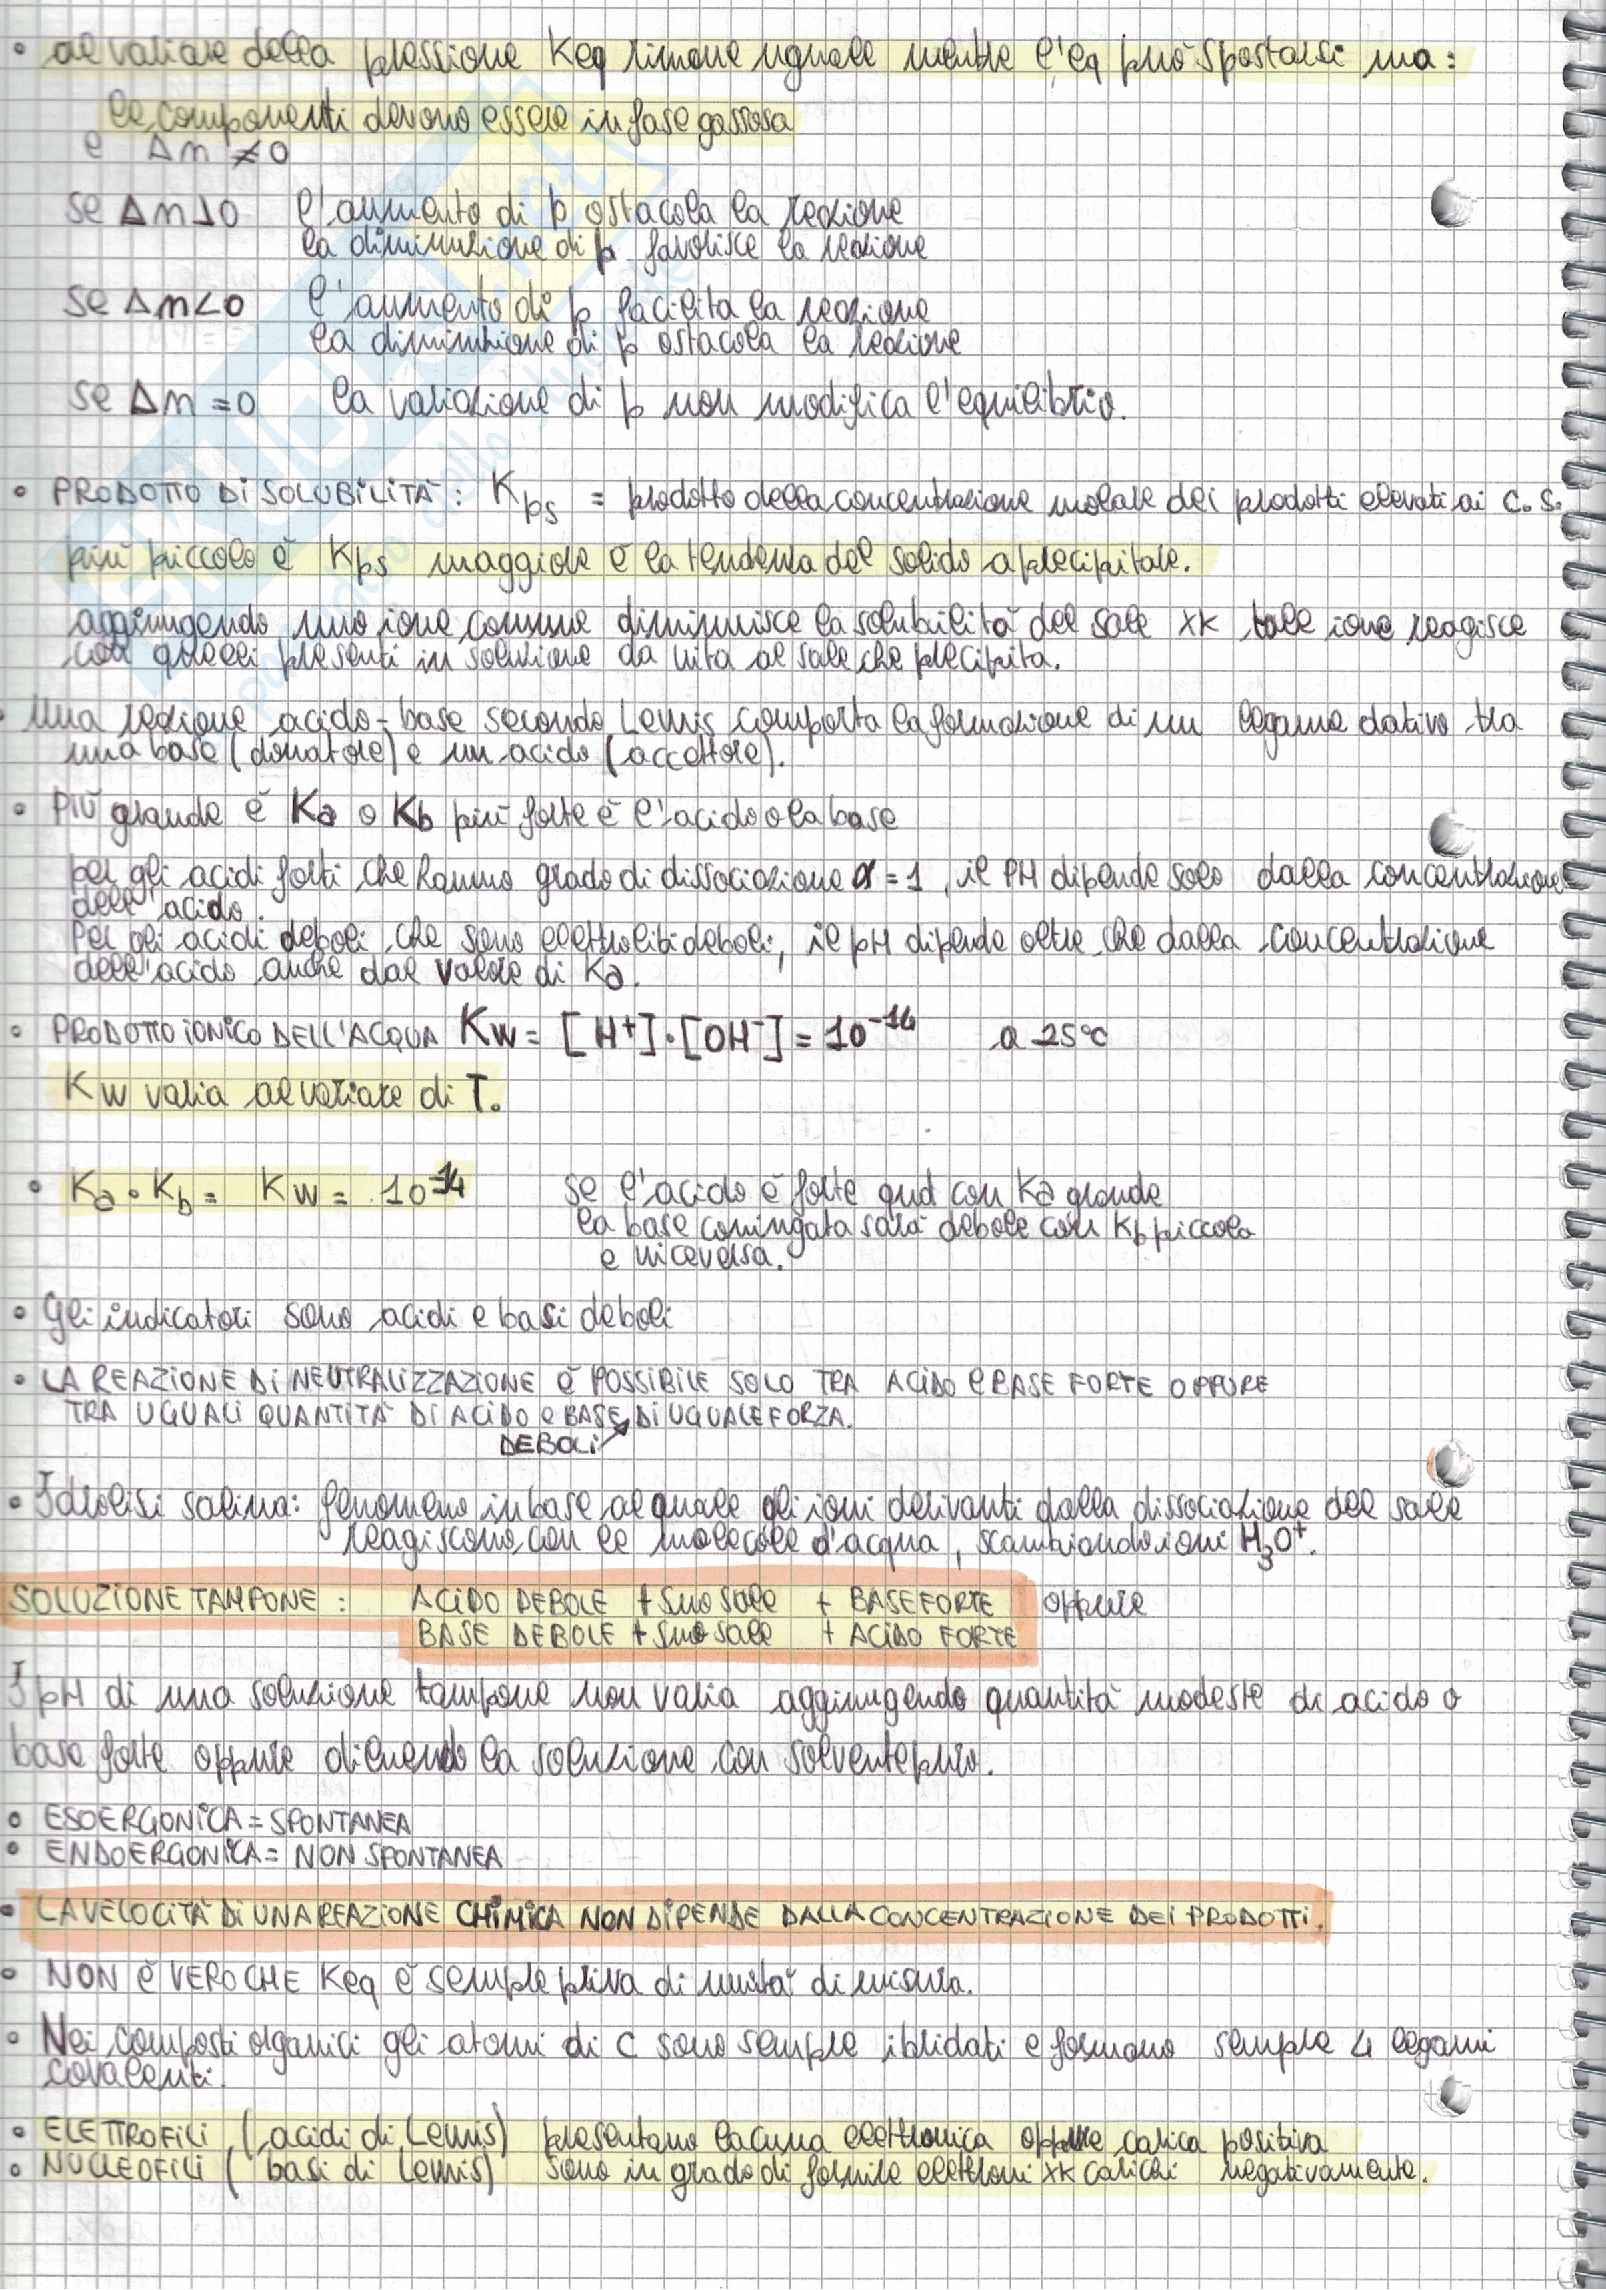 • al variare della pressione Keq rimane uguale mentre l'eq può spostarsi ma:
le componenti devono essere in fase gassosa
e Δn ≠ 0
se Δn > 0 l'aumento di p ostacola la reazione
la diminuzione di p favorisce la reazione
se Δn < 0 l'aumento di p facilita la reazione
la diminuzione di p ostacola la reazione
se Δn = 0 la variazione di p non modifica l'equilibrio.
• PRODOTTO DI SOLUBILITÀ: Kps = prodotto della concentrazione molare dei prodotti elevati ai C.S.
più piccolo è Kps maggiore è la tendenza del solido a precipitare.
aggiungendo uno ione comune diminuisce la solubilità del sale xk tale ione reagisce
con quelli presenti in soluzione da vita al sale che precipita.
• Una reazione acido-base secondo Lewis comporta la formazione di un legame dativo tra
una base (donatore) e un acido (accettore).
• Più grande è Ka o Kb più forte è l'acido o la base
per gli acidi forti, che hanno grado di dissociazione α = 1, il PH dipende solo dalla concentrazione
dell'acido.
Per gli acidi deboli, che sono elettroliti deboli, il pH dipende oltre che dalla concentrazione
dell'acido anche dal valore di Ka.
• PRODOTTO IONICO DELL'ACQUA Kw = [H⁺]·[OH⁻] = 10⁻¹⁴ a 25°C
Kw varia al variare di T.
• Ka · Kb = Kw = 10⁻¹⁴ se l'acido è forte qnd con Ka grande
la base coniugata sarà debole con Kb piccola
e viceversa.
• Gli indicatori sono acidi e basi deboli
• LA REAZIONE DI NEUTRALIZZAZIONE è POSSIBILE SOLO TRA ACIDO e BASE FORTE OPPURE
TRA UGUALI QUANTITÀ DI ACIDO e BASE DI UGUALE FORZA.
DEBOLI
• Idrolisi salina: fenomeno in base al quale gli ioni derivanti dalla dissociazione del sale
reagiscono con le molecole d'acqua, scambiando ioni H₃O⁺.
SOLUZIONE TAMPONE: ACIDO DEBOLE + suo sale + BASE FORTE oppure
BASE DEBOLE + suo sale + ACIDO FORTE
I pH di una soluzione tampone non varia aggiungendo quantità modeste di acido o
base forte oppure diluendo la soluzione con solvente puro.
• ESOERGONICA = SPONTANEA
• ENDOERGONICA = NON SPONTANEA
• LA VELOCITÀ DI UNA REAZIONE CHIMICA NON DIPENDE DALLA CONCENTRAZIONE DEI PRODOTTI.
• NON è VERO CHE Keq è sempre priva di unità di misura.
• Nei composti organici gli atomi di C sono sempre ibridati e formano sempre 4 legami
covalenti.
• ELETTROFILI (acidi di Lewis) presentano lacuna elettronica oppure carica positiva
• NUCLEOFILI (basi di Lewis) sono in grado di fornire elettroni xk carichi negativamente.